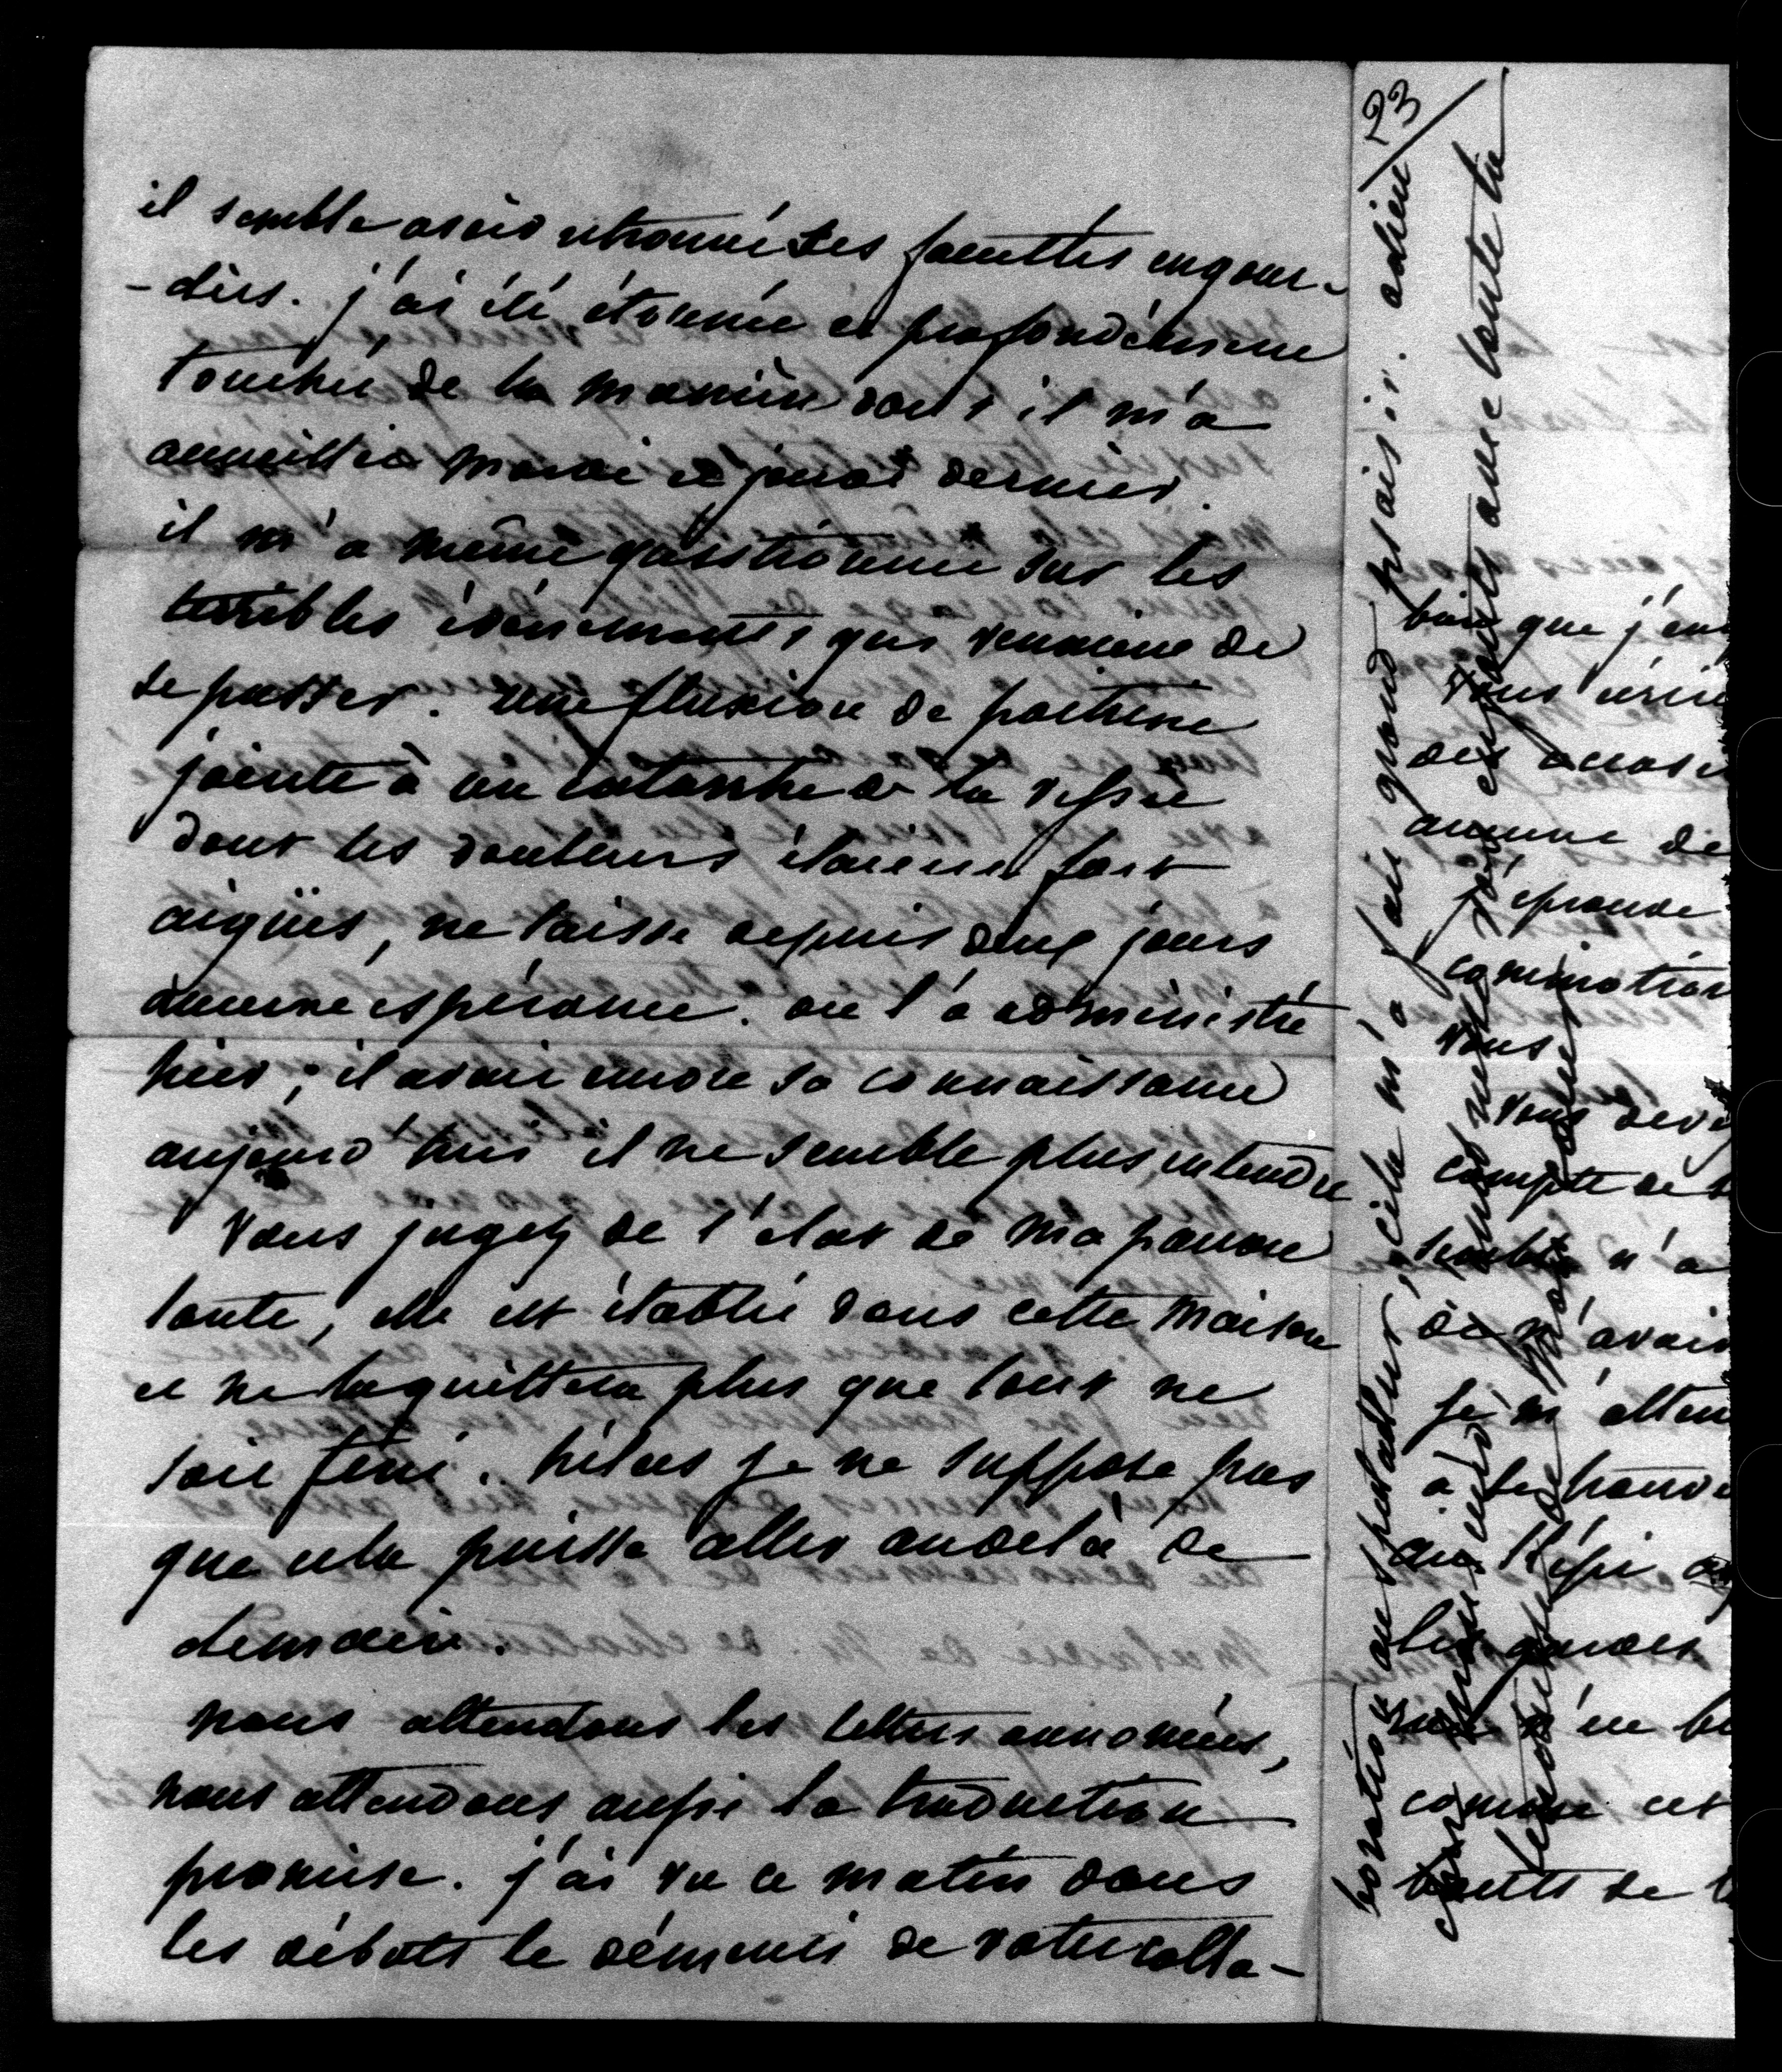 il semble avoir retrouvé ses facultés engour-
-dies. j'ai été étonnée et profondément
touchée de la manière dont il m'a
accueillie mardi et jeudi dernier.
il m'a même questionnée sur les
terribles événements qui venaient de
se passer. une fluxion de poitrine
jointe à un catarrhe de la vessie
dont les douleurs étaient fort
aigües, ne laisse depuis deux jours
aucune espérance. on l'a administré
hier ; il avait encore sa connaissance
aujourd'hui il ne semble plus entendre
Vous jugez de l'état de ma pauvre
tante, elle est établie dans cette maison
et ne la quittera plus que tout ne
soit fini. hélas je ne suppose pas
que cela puisse aller audelà de
demain.
nous attendons les lettres annoncées,
nous attendons aussi la traduction
promise. j'ai vu ce matin dans
les débats le démenti de votre colla-
boration au spectateur, cela m'a fait grand plaisir. adieu
23
tendresse de mon
bien que j'en
vous écrire
des occasi
aucune de
j'éprouve
commotion
vous
vous devez
compte de
semble n'a
de n'avait
je m'atten
à les trouve
les gardes
rien n'en
comme cet
bouts de